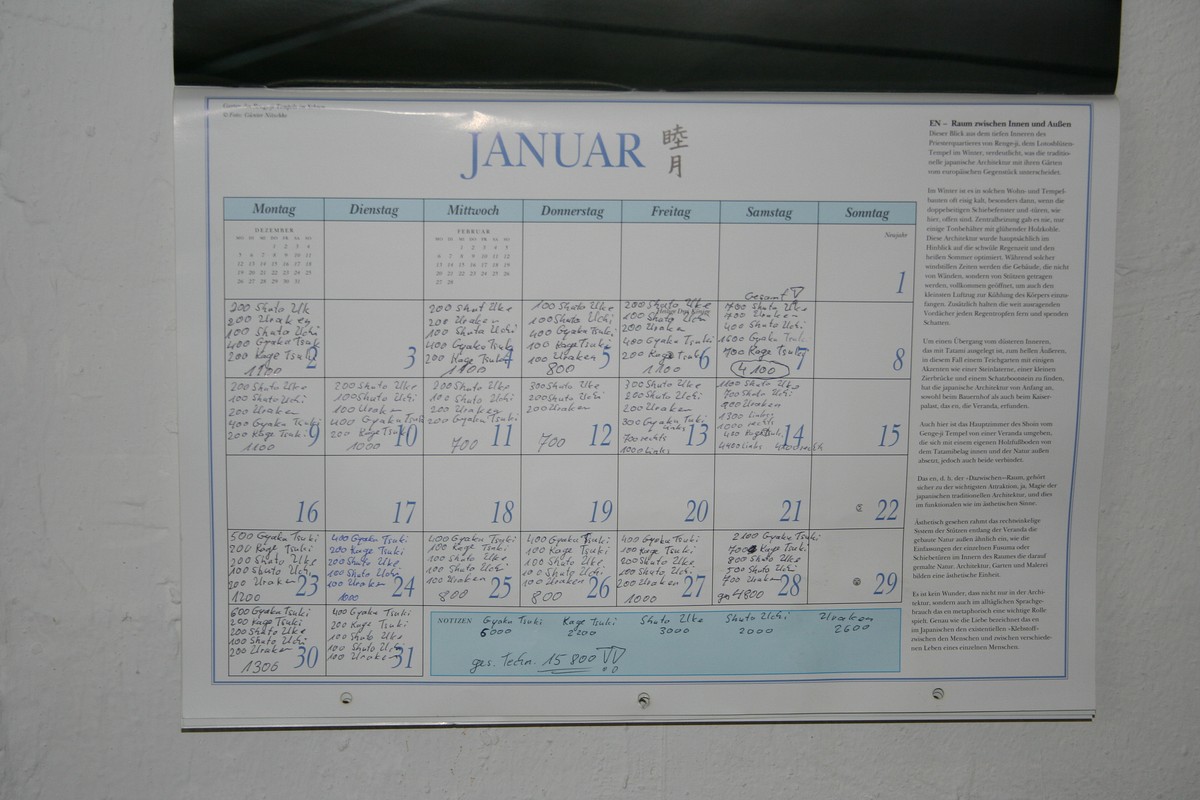 © Foto: Günter Nitschke
JANUAR 睦月
Montag Dienstag Mittwoch Donnerstag Freitag Samstag Sonntag
DEZEMBER
MO DI MI DO FR SA SO
1 2 3 4
5 6 7 8 9 10 11
12 13 14 15 16 17 18
19 20 21 22 23 24 25
26 27 28 29 30 31
FEBRUAR
MO DI MI DO FR SA SO
1 2 3 4 5
6 7 8 9 10 11 12
13 14 15 16 17 18 19
20 21 22 23 24 25 26
27 28
Neujahr
1
200 Shuto Uk
200 Uraken
100 Shuto Uchi
400 Gyaku Tsuk
200 Kage Tsuki
1100
2
3
200 Shut Uke
200 Uraken
100 Shuto Uchi
400 Gyaku Tsuk
200 Kage Tsuki
1100
4
100 Shuto Uke
100 Shuto Uchi
400 Gyaku Tsuki
100 Kage Tsuki
100 Uraken
800
5
Heilige Drei Könige
200 Shuto Uke
100 Shuto Uchi
200 Uraken
400 Gyaku Tsuki
200 Kage Tsuki
1100
6
Gesamt
700 Shuto Uke
700 Uraken
400 Shuto Uchi
1600 Gyaku Tsuki
700 Kage Tsuki
4100
7
8
200 Shuto Uke
100 Shuto Uchi
200 Uraken
400 Gyaku Tsuki
200 Kage Tsuki
1100
9
200 Shuto Uke
100 Shuto Uchi
100 Uraken
400 Gyaku Tsuki
200 Kage Tsuki
1000
10
200 Shuto Uke
100 Shuto Uchi
200 Uraken
200 Gyaku Tsuki
700
11
300 Shuto Uke
200 Shuto Uchi
200 Uraken
700
12
300 Shuto Uke
200 Shuto Uchi
200 Uraken
300 Gyaku Tsuki
links
700 rechts
1000 links
13
1100 Shuto Uke
700 Shuto Uchi
900 Uraken
1300 links
1000 rechts
400 Kage Tsuki
14
15
16
17
18
19
20
21
22
500 Gyaku Tsuki
200 Kage Tsuki
200 Shuto Uke
100 Shuto Uchi
200 Uraken
1200
23
400 Gyaku Tsuki
200 Kage Tsuki
200 Shuto Uke
100 Shuto Uchi
100 Uraken
1000
24
400 Gyaku Tsuki
100 Kage Tsuki
100 Shuto Uke
100 Shuto Uchi
100 Uraken
800
25
400 Gyaku Tsuki
100 Kage Tsuki
100 Shuto Uke
100 Shuto Uchi
100 Uraken
800
26
400 Gyaku Tsuki
100 Kage Tsuki
200 Shuto Uke
100 Shuto Uchi
200 Uraken
1000
27
2100 Gyaku Tsuki
700 Kage Tsuki
800 Shuto Uke
500 Shuto Uchi
700 Uraken
ges 4800
28
29
600 Gyaku Tsuki
200 Kage Tsuki
200 Shuto Uke
100 Shuto Uchi
200 Uraken
1300
30
400 Gyaku Tsuki
200 Kage Tsuki
100 Shuto Uke
100 Shuto Uchi
100 Uraken
31
NOTIZEN Gyaku Tsuki Kage Tsuki Shuto Uke Shuto Uchi Uraken
6000 2200 3000 2000 2600
ges. Techn. 15 800
EN – Raum zwischen Innen und Außen
Dieser Blick aus dem tiefen Inneren des
Priesterquartieres von Renge-ji, dem Lotosblüten-
Tempel im Winter, verdeutlicht, was die traditio-
nelle japanische Architektur mit ihren Gärten
vom europäischen Gegenstück unterscheidet.
Im Winter ist es in solchen Wohn- und Tempel-
bauten oft eisig kalt, besonders dann, wenn die
doppelseitigen Schiebefenster und -türen, wie
hier, offen sind. Zentralheizung gab es nie, nur
einige Tonbehälter mit glühender Holzkohle.
Diese Architektur wurde hauptsächlich im
Hinblick auf die schwüle Regenzeit und den
heißen Sommer optimiert. Während solcher
windstillen Zeiten werden die Gebäude, die nicht
von Wänden, sondern von Stützen getragen
werden, vollkommen geöffnet, um auch den
kleinsten Luftzug zur Kühlung des Körpers einzu-
fangen. Zusätzlich halten die weit ausragenden
Vordächer jeden Regentropfen fern und spenden
Schatten.
Um einen Übergang vom düsteren Inneren,
das mit Tatami ausgelegt ist, zum hellen Äußeren,
in diesem Fall einem Teichgarten mit einigen
Akzenten wie einer Steinlaterne, einer kleinen
Zierbrücke und einem Schaubootstein zu finden,
hat die japanische Architektur von Anfang an,
sowohl beim Bauernhof als auch beim Kaiser-
palast, das en, die Veranda, erfunden.
Auch hier ist das Hauptzimmer des Shoin vom
Genge-ji Tempel von einer Veranda umgeben,
die sich mit einem eigenen Holzfußboden von
dem Tatamibelag innen und der Natur außen
absetzt, jedoch auch beide verbindet.
Das en, d. h. der «Dazwischen»-Raum, gehört
sicher zu der wichtigsten Attraktion, ja, Magie der
japanischen traditionellen Architektur, und dies
im funktionalen wie im ästhetischen Sinne.
Ästhetisch gesehen rahmt das rechtwinkelige
System der Stützen entlang der Veranda die
gebaute Natur außen ähnlich ein, wie die
Einfassungen der einzelnen Fusuma oder
Schiebetüren im Innern des Raumes die darauf
gemalte Natur. Architektur, Garten und Malerei
bilden eine ästhetische Einheit.
Es ist kein Wunder, dass nicht nur in der Archi-
tektur, sondern auch im alltäglichen Sprachge-
brauch das en metaphorisch eine wichtige Rolle
spielt. Genau das wie die Liebe bezeichnet das en
im Japanischen den existentiellen «Klebstoff»
zwischen den Menschen und zwischen verschiede-
nen Leben eines einzelnen Menschen.